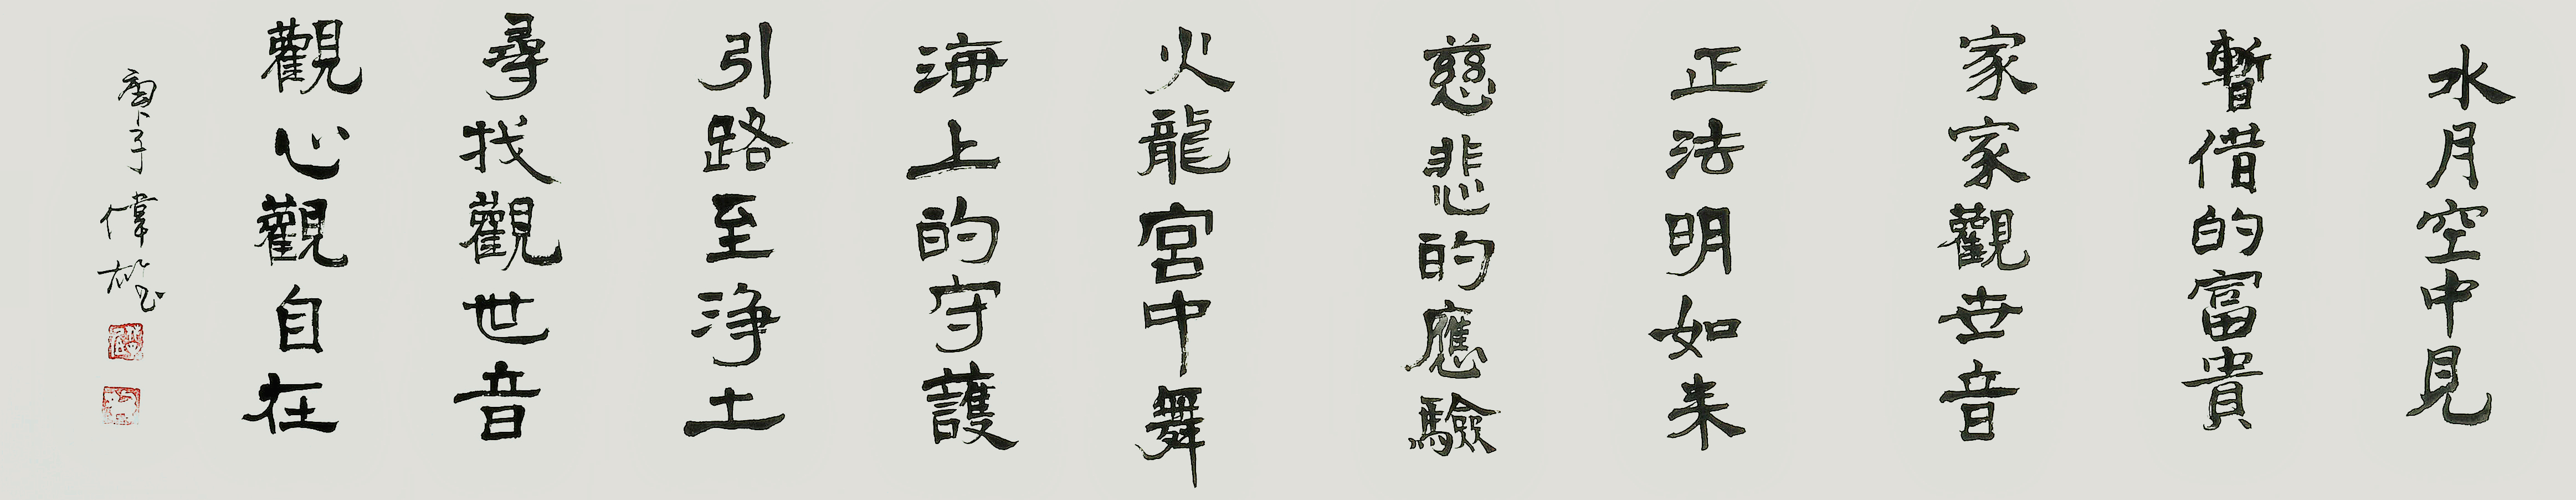 水月空中見
暫借的富貴
家家觀世音
正法明如来
慈悲的應驗
火龍宮中舞
海上的守護
引路至淨土
尋找觀世音
觀心觀自在
庚子 偉雄